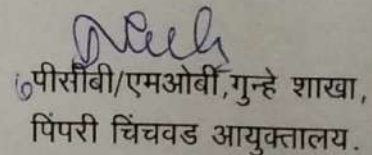 पीसीबी/एमओबी,गुन्हे शाखा,
पिंपरी चिंचवड आयुक्तालय.